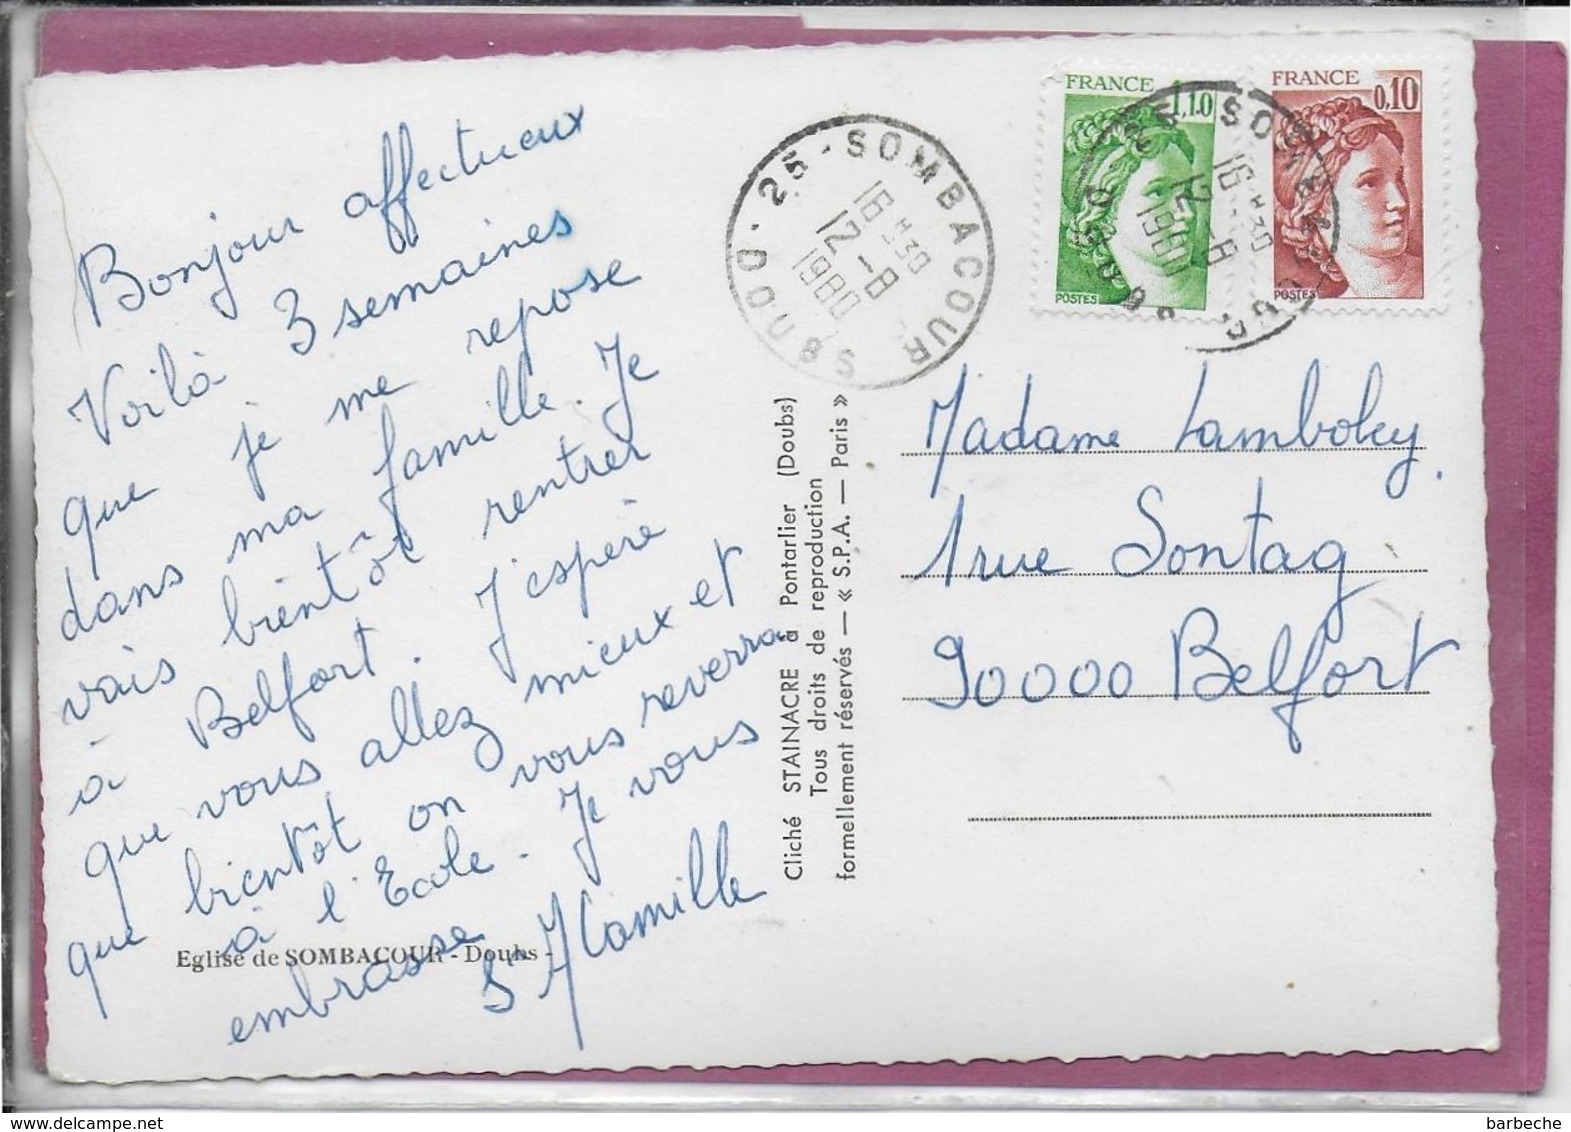 Bonjour affectueux
Voilà 3 semaines
que je me repose
dans ma famille. Je
vais bientôt rentrer
à Belfort. J'espère
que vous allez mieux et
que bientôt on vous reverra
à l'Ecole. Je vous
embrasse
Sr M Camille
Eglise de SOMBACOUR - Doubs -
Cliché STAINACRE à Pontarlier (Doubs)
Tous droits de reproduction
formellement réservés — « S.P.A. — Paris »
25 - SOMBACOUR
16 H30
12 - 8
1980
DOUBS
FRANCE
1,10
POSTES
FRANCE
0,10
POSTES
16 H30
12 - 8
1980
Madame Lamboley.
1 rue Sontag
90000 Belfort
www.delcampe.net
barbeche